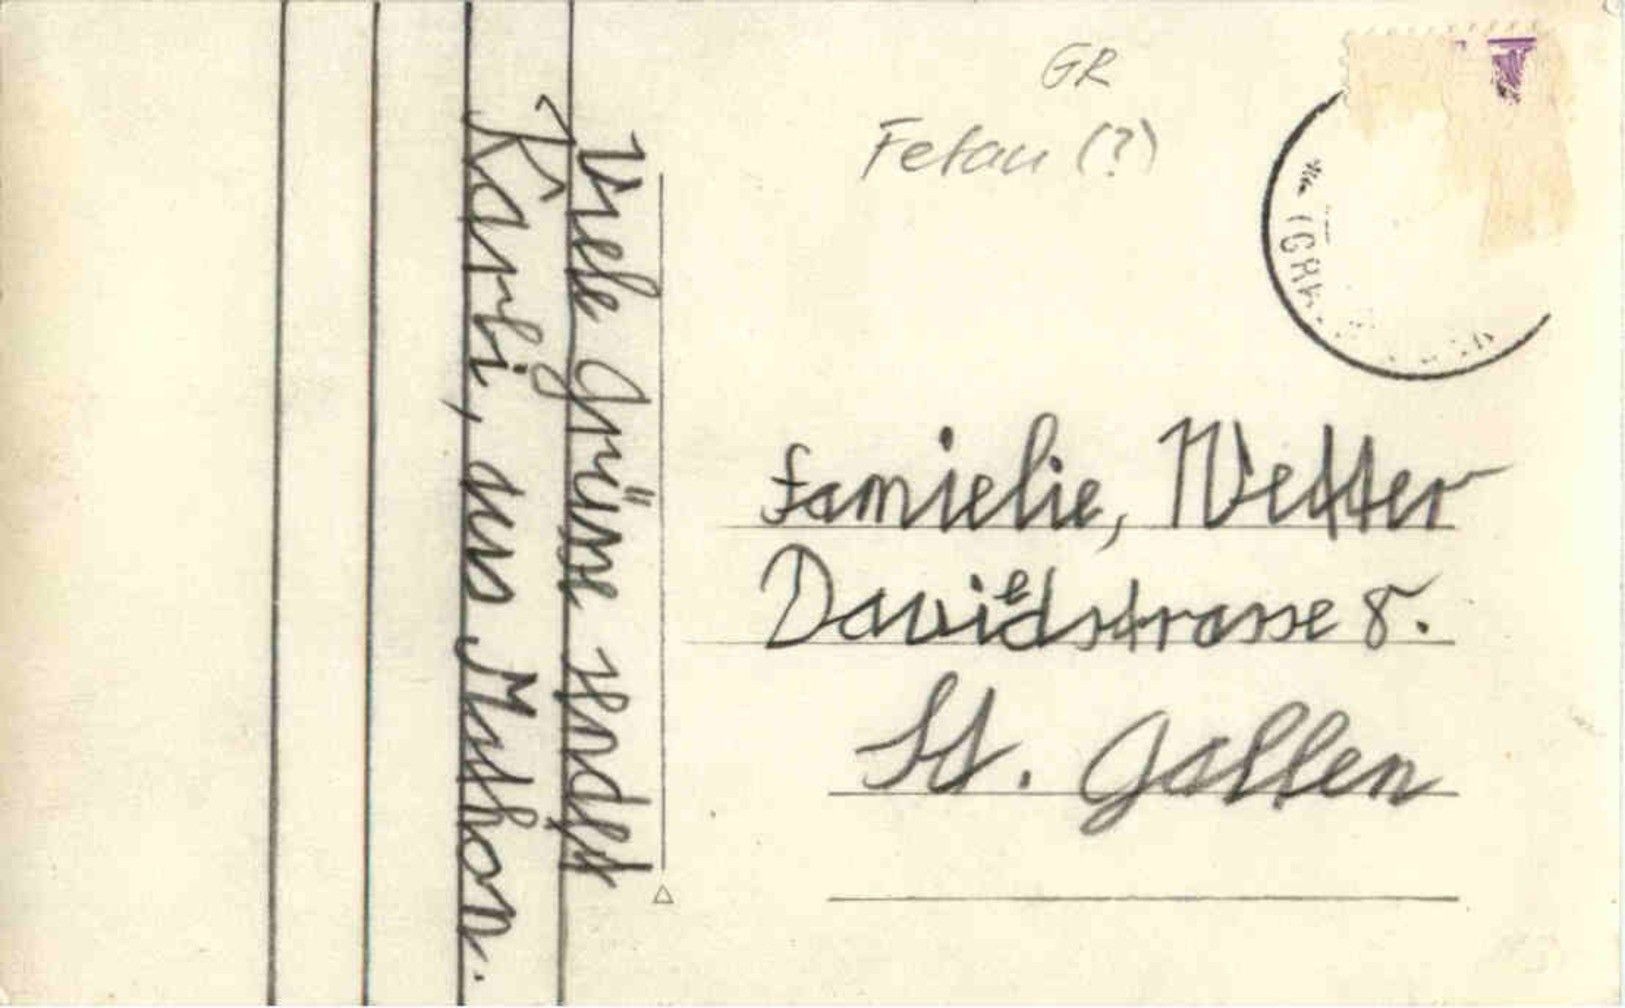 Viele Grüsse sendet
Karli, aus
GR
Fetan (?)
Famielie, Wetter
Davidstrasse 8.
St. Gallen